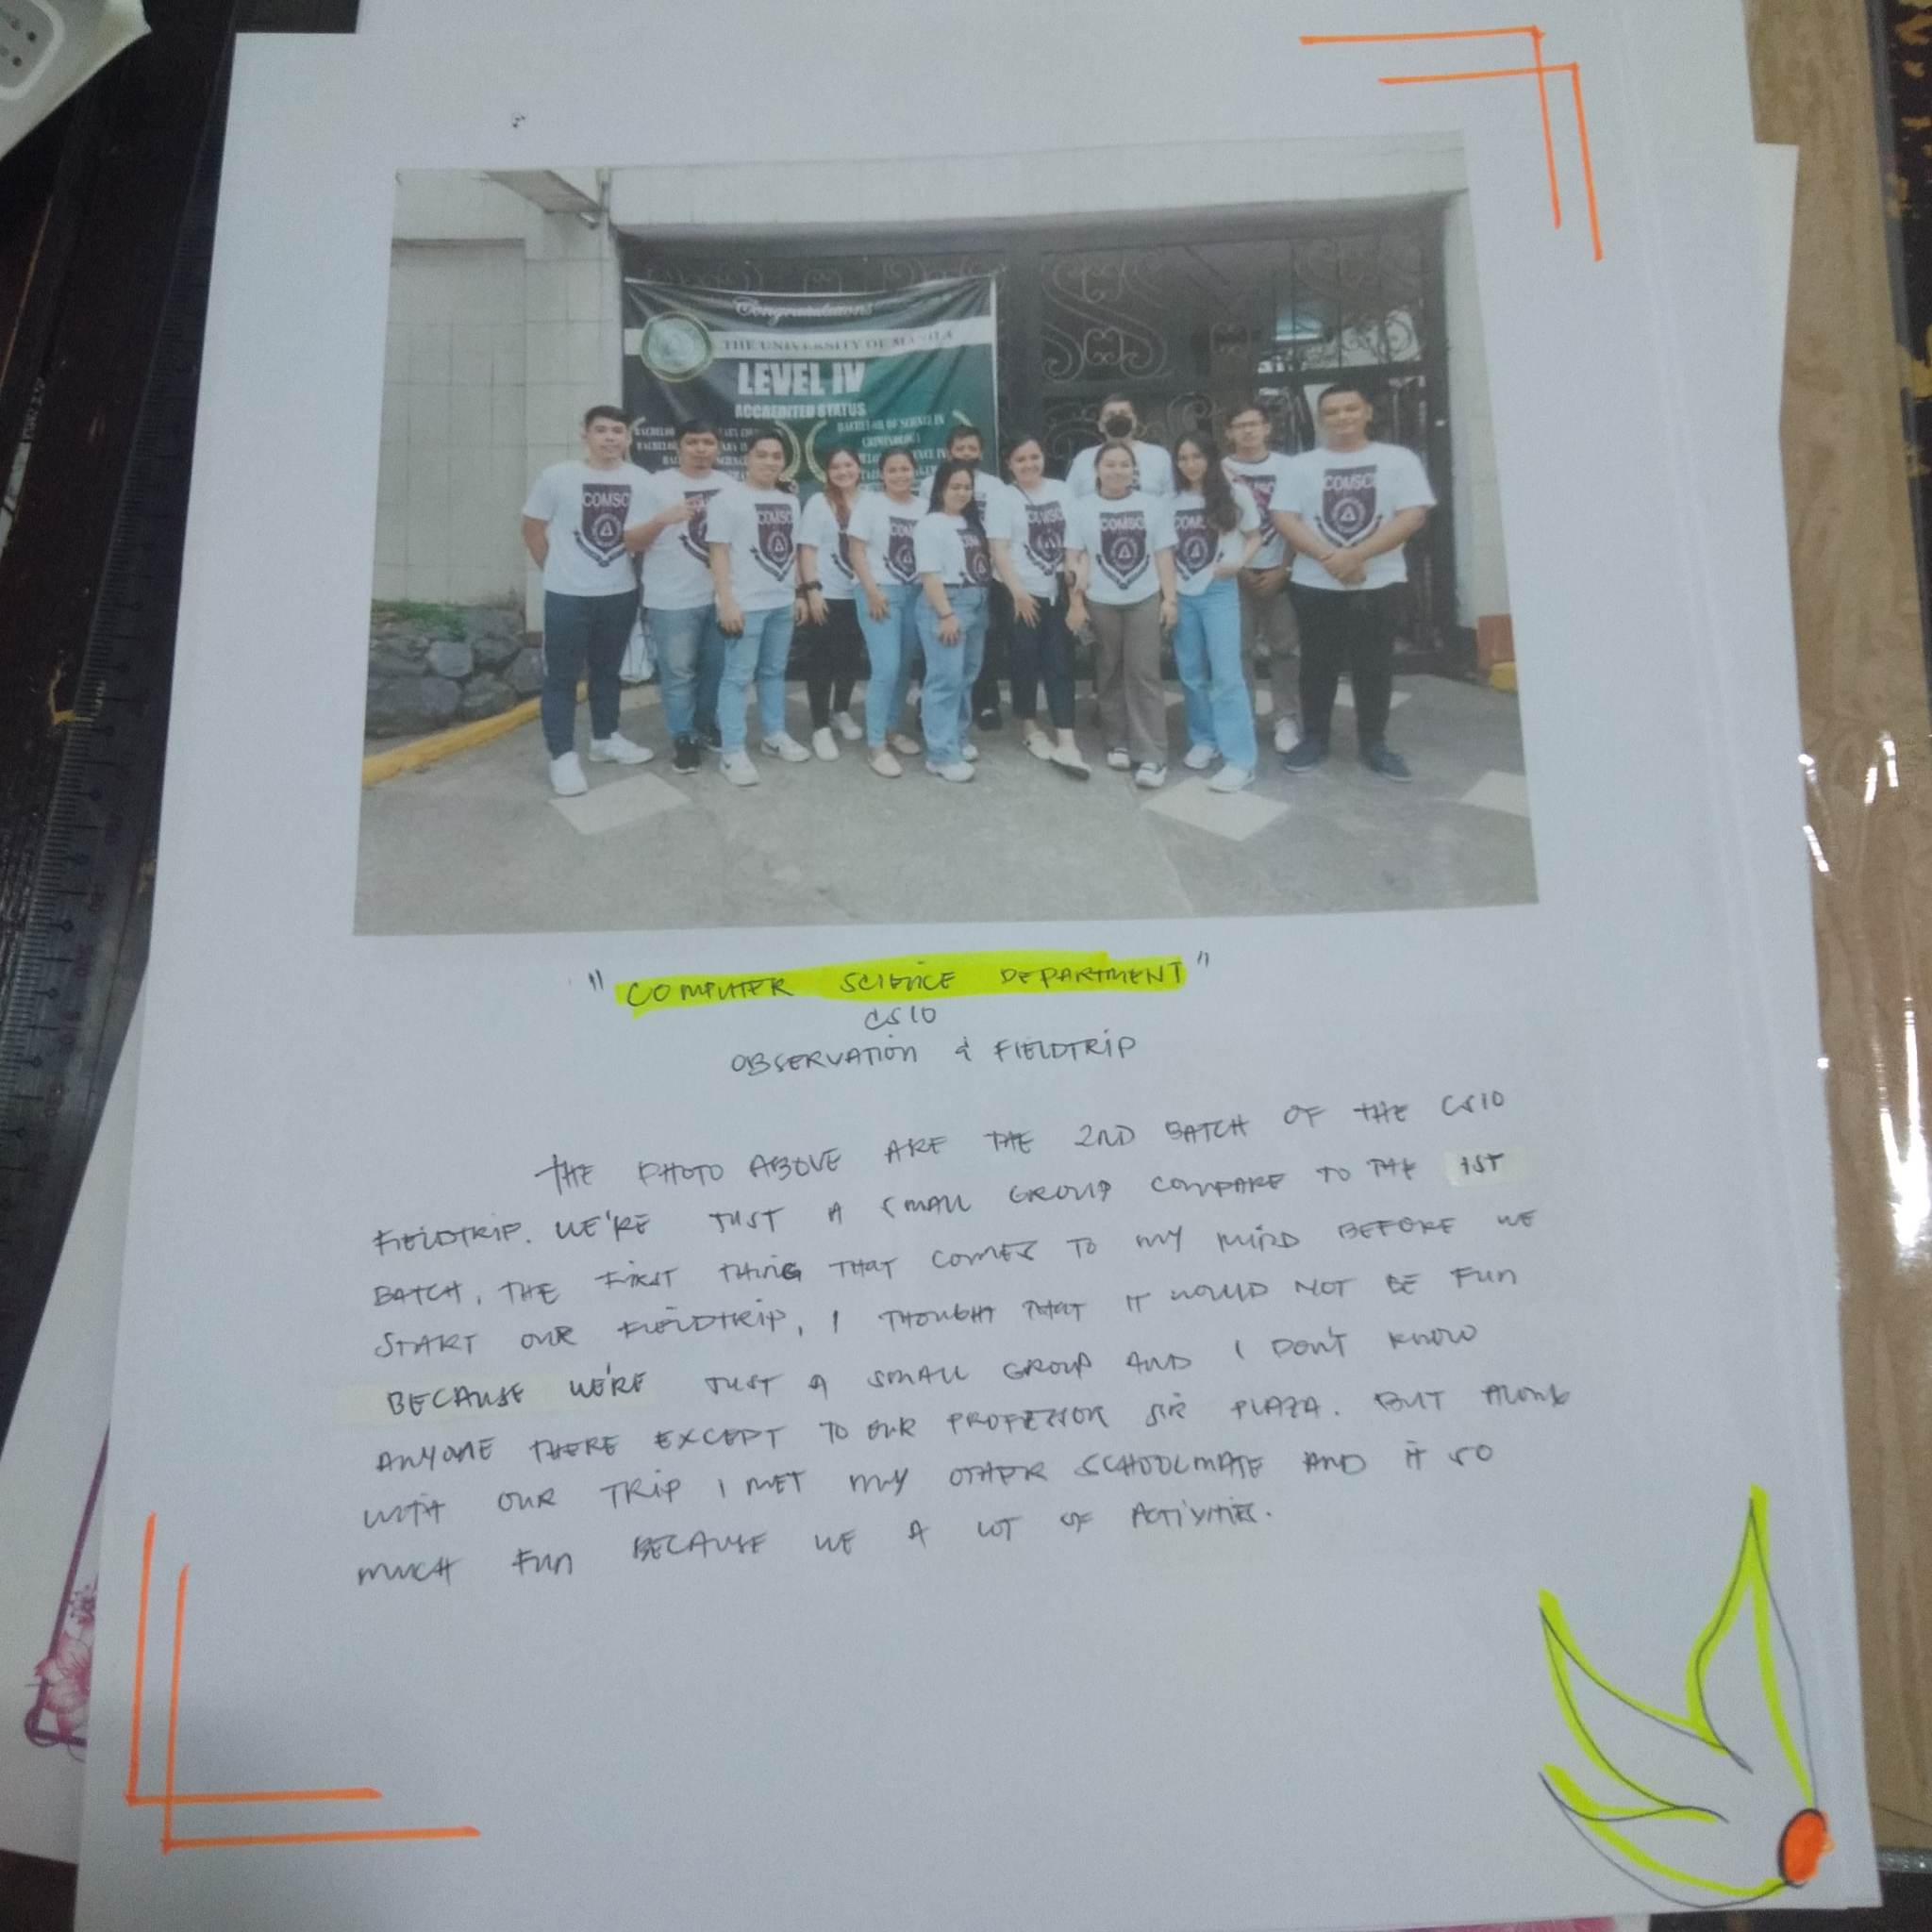 Congratulations
THE UNIVERSITY OF MANILA
LEVEL IV
ACCREDITED STATUS
BACHELOR OF SCIENCE IN
CRIMINOLOGY
COMSCI
COMSCI
COMSCI
COMSCI
" COMPUTER SCIENCE DEPARTMENT "
CS10
OBSERVATION & FIELDTRIP
THE PHOTO ABOVE ARE THE 2ND BATCH OF THE CS10
FIELDTRIP. WE'RE JUST A SMALL GROUP COMPARE TO THE 1ST
BATCH, THE FIRST THING THAT COMES TO MY MIND BEFORE WE
START OUR FIELDTRIP, I THOUGHT THAT IT WOULD NOT BE FUN
BECAUSE WE'RE JUST A SMALL GROUP AND I DON'T KNOW
ANYONE THERE EXCEPT TO OUR PROFESSOR SIR PLAZA. BUT ALONG
WITH OUR TRIP I MET MY OTHER SCHOOLMATE AND IT SO
MUCH FUN BECAUSE WE A LOT OF ACTIVITIES.